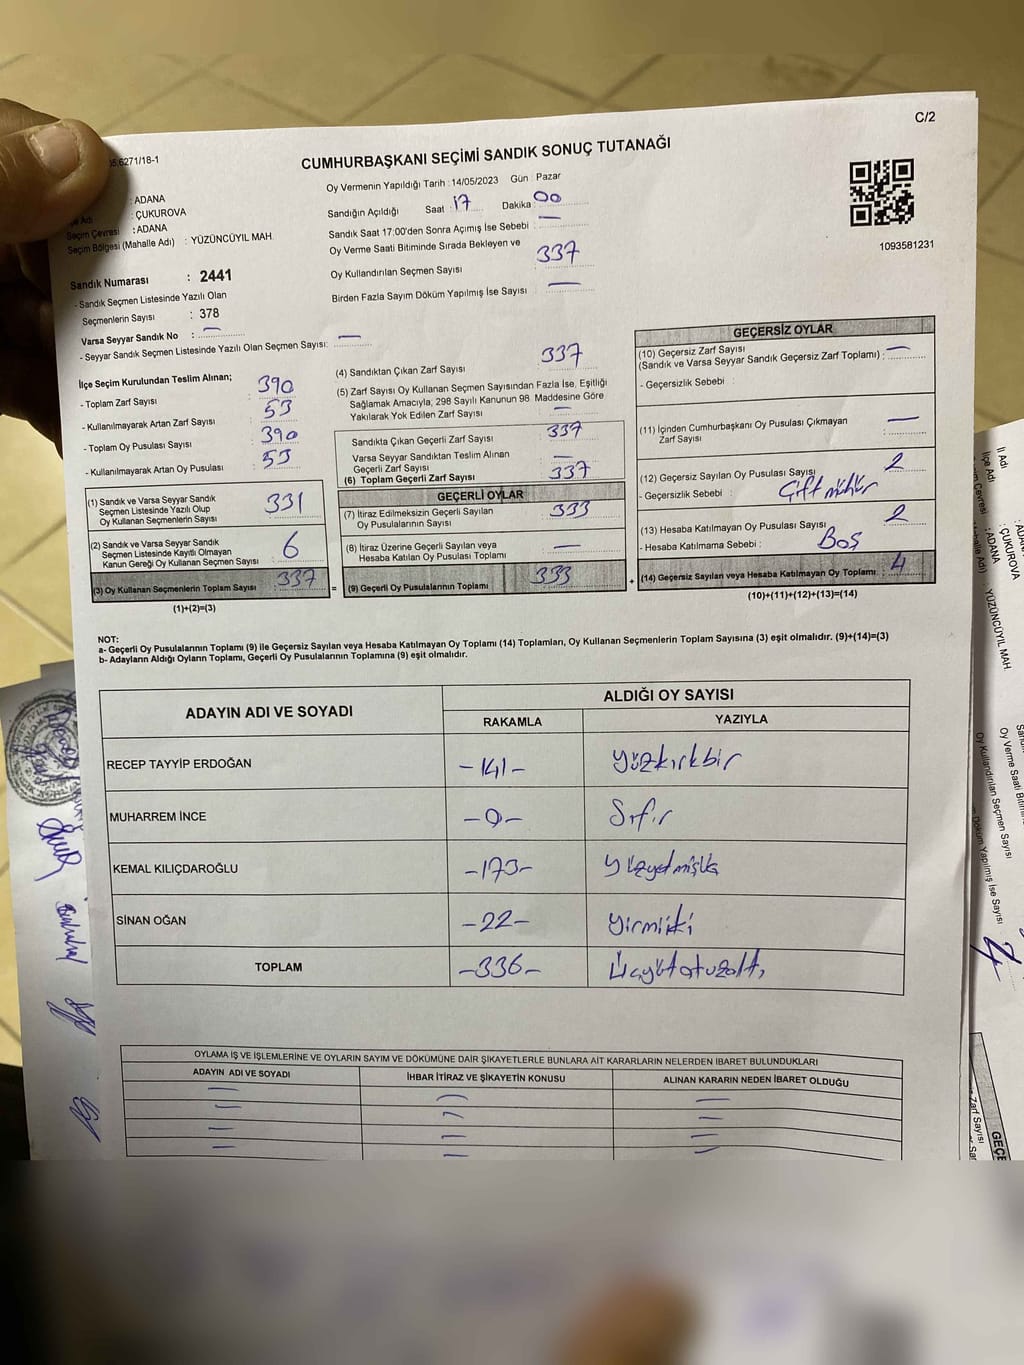 C/2
6271/18-1
CUMHURBAŞKANI SEÇİMİ SANDIK SONUÇ TUTANAĞI
: ADANA
: ÇUKUROVA
Seçim Çevresi : ADANA
Seçim Bölgesi (Mahalle Adı) : YÜZÜNCÜYIL MAH.
Oy Vermenin Yapıldığı Tarih : 14/05/2023 Gün : Pazar
Sandığın Açıldığı Saat : 17 Dakika : 00
Sandık Saat 17:00'den Sonra Açımış İse Sebebi : —
Oy Verme Saati Bitiminde Sırada Bekleyen ve
Oy Kullandırılan Seçmen Sayısı : 337
Birden Fazla Sayım Döküm Yapılmış İse Sayısı : —
1093581231
Sandık Numarası : 2441
- Sandık Seçmen Listesinde Yazılı Olan
Seçmenlerin Sayısı : 378
Varsa Seyyar Sandık No : —
- Seyyar Sandık Seçmen Listesinde Yazılı Olan Seçmen Sayısı: —
İlçe Seçim Kurulundan Teslim Alınan;
- Toplam Zarf Sayısı : 390
- Kullanılmayarak Artan Zarf Sayısı : 53
- Toplam Oy Pusulası Sayısı : 390
- Kullanılmayarak Artan Oy Pusulası : 53
(1) Sandık ve Varsa Seyyar Sandık
Seçmen Listesinde Yazılı Olup
Oy Kullanan Seçmenlerin Sayısı : 331
(2) Sandık ve Varsa Seyyar Sandık
Seçmen Listesinde Kayıtlı Olmayan
Kanun Gereği Oy Kullanan Seçmen Sayısı : 6
(3) Oy Kullanan Seçmenlerin Toplam Sayısı : 337
(1)+(2)=(3)
(4) Sandıktan Çıkan Zarf Sayısı : 337
(5) Zarf Sayısı Oy Kullanan Seçmen Sayısından Fazla İse, Eşitliği
Sağlamak Amacıyla; 298 Sayılı Kanunun 98. Maddesine Göre
Yakılarak Yok Edilen Zarf Sayısı : —
Sandıkta Çıkan Geçerli Zarf Sayısı : 337
Varsa Seyyar Sandıktan Teslim Alınan
Geçerli Zarf Sayısı : —
(6) Toplam Geçerli Zarf Sayısı : 337
GEÇERLİ OYLAR
(7) İtiraz Edilmeksizin Geçerli Sayılan
Oy Pusulalarının Sayısı : 333
(8) İtiraz Üzerine Geçerli Sayılan veya
Hesaba Katılan Oy Pusulası Toplamı : —
= (9) Geçerli Oy Pusulalarının Toplamı : 333
GEÇERSİZ OYLAR
(10) Geçersiz Zarf Sayısı
(Sandık ve Varsa Seyyar Sandık Geçersiz Zarf Toplamı) : —
- Geçersizlik Sebebi :
(11) İçinden Cumhurbaşkanı Oy Pusulası Çıkmayan
Zarf Sayısı : —
(12) Geçersiz Sayılan Oy Pusulası Sayısı : 2
- Geçersizlik Sebebi : Çift mühür
(13) Hesaba Katılmayan Oy Pusulası Sayısı : 2
- Hesaba Katılmama Sebebi : Boş
+ (14) Geçersiz Sayılan veya Hesaba Katılmayan Oy Toplamı : 4
(10)+(11)+(12)+(13)=(14)
NOT:
a- Geçerli Oy Pusulalarının Toplamı (9) ile Geçersiz Sayılan veya Hesaba Katılmayan Oy Toplamı (14) Toplamları, Oy Kullanan Seçmenlerin Toplam Sayısına (3) eşit olmalıdır. (9)+(14)=(3)
b- Adayların Aldığı Oyların Toplamı, Geçerli Oy Pusulalarının Toplamına (9) eşit olmalıdır.
ADAYIN ADI VE SOYADI ALDIĞI OY SAYISI
RAKAMLA YAZIYLA
RECEP TAYYİP ERDOĞAN -141- Yüzkırkbir
MUHARREM İNCE -0- Sıfır
KEMAL KILIÇDAROĞLU -173-
SİNAN OĞAN -22- Yirmiiki
TOPLAM -336- Üçyüzotuzaltı
OYLAMA İŞ VE İŞLEMLERİNE VE OYLARIN SAYIM VE DÖKÜMÜNE DAİR ŞİKAYETLERLE BUNLARA AİT KARARLARIN NELERDEN İBARET BULUNDUKLARI
ADAYIN ADI VE SOYADI İHBAR İTİRAZ VE ŞİKAYETİN KONUSU ALINAN KARARIN NEDEN İBARET OLDUĞU
İl Adı : ADANA
: ÇUKUROVA
: ADANA
YÜZÜNCÜYIL MAH.
Oy Verme Saati Bitim
Oy Kullandırılan Seçmen Sayısı
Döküm Yapılmış İse Sayısı
Zarf Sayısı
GEÇE